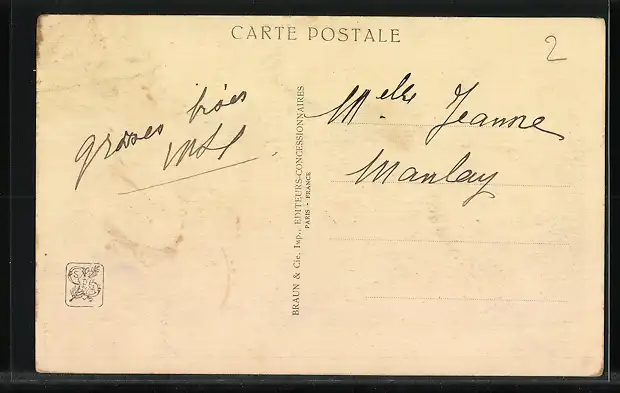 CARTE POSTALE
2
groses bises
Melle Jeanne
Manlay
BRAUN & Cie, Imp., EDITEURS-CONCESSIONNAIRES
PARIS - FRANCE